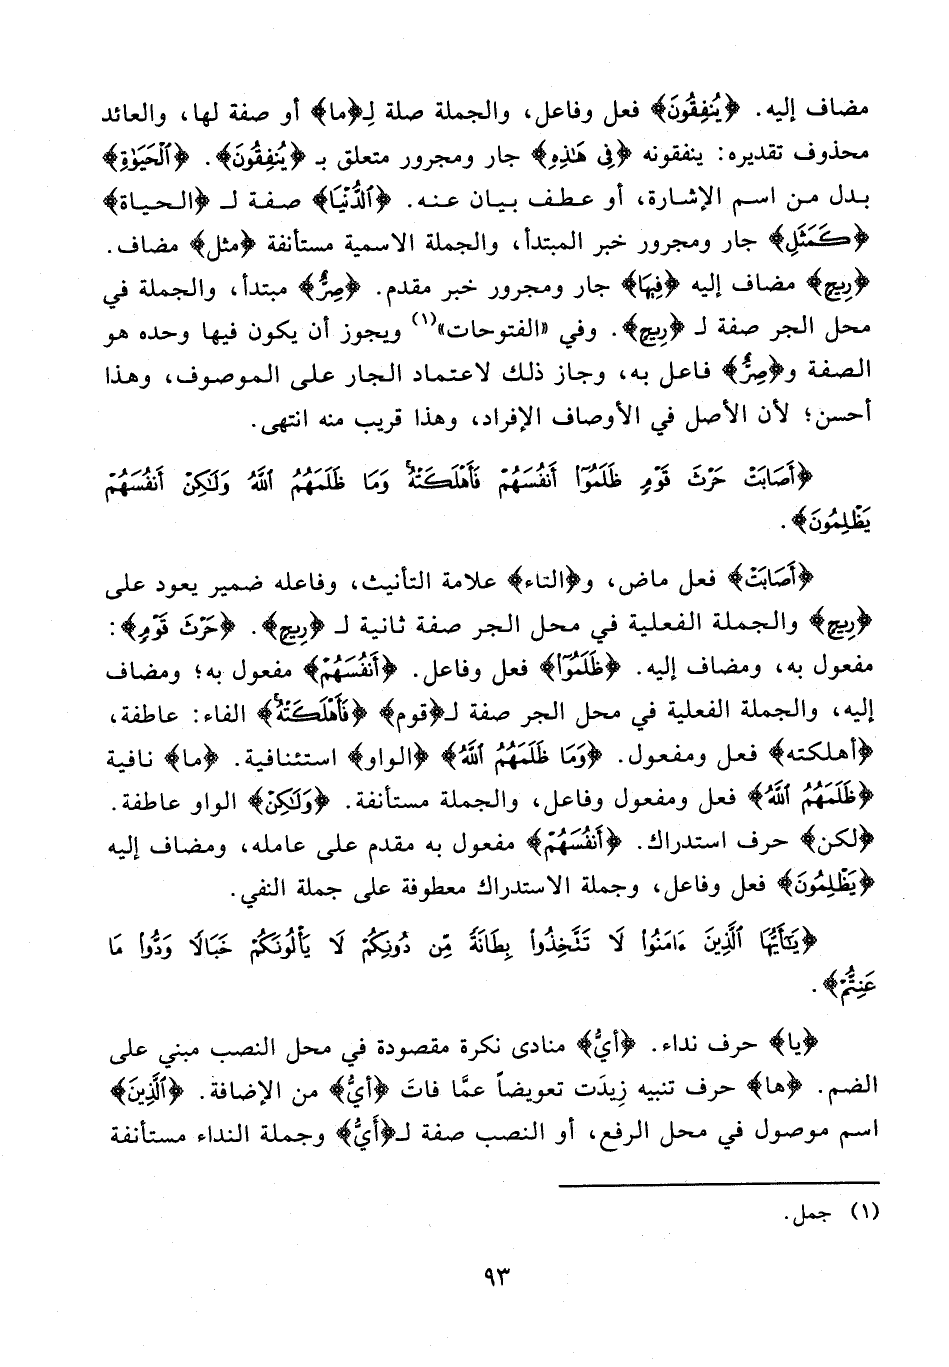 مضاف إليه. ﴿يُنفِقُونَ﴾ فعل وفاعل، والجملة صلة لِـ﴿ما﴾ أو صفة لها، والعائد
محذوف تقديره: ينفقونه ﴿فِى هَٰذِهِ﴾ جار ومجرور متعلق بـ ﴿يُنفِقُونَ﴾. ﴿ٱلْحَيَوٰةِ﴾
بدل من اسم الإشارة، أو عطف بيان عنه. ﴿ٱلدُّنْيَا﴾ صفة لـ ﴿الحياة﴾
﴿كَمَثَلِ﴾ جار ومجرور خبر المبتدأ، والجملة الاسمية مستأنفة ﴿مثل﴾ مضاف.
﴿رِيحٍ﴾ مضاف إليه ﴿فِيهَا﴾ جار ومجرور خبر مقدم. ﴿صِرٌّ﴾ مبتدأ، والجملة في
محل الجر صفة لـ ﴿رِيحٍ﴾. وفي «الفتوحات»(١) ويجوز أن يكون فيها وحده هو
الصفة و﴿صِرٌّ﴾ فاعل به، وجاز ذلك لاعتماد الجار على الموصوف، وهذا
أحسن؛ لأن الأصل في الأوصاف الإفراد، وهذا قريب منه انتهى.
﴿أَصَابَتْ حَرْثَ قَوْمٍ ظَلَمُوٓا۟ أَنفُسَهُمْ فَأَهْلَكَتْهُ ۚ وَمَا ظَلَمَهُمُ ٱللَّهُ وَلَٰكِنْ أَنفُسَهُمْ
يَظْلِمُونَ﴾.
﴿أَصَابَتْ﴾ فعل ماض، و﴿التاء﴾ علامة التأنيث، وفاعله ضمير يعود على
﴿رِيحٍ﴾ والجملة الفعلية في محل الجر صفة ثانية لـ ﴿رِيحٍ﴾. ﴿حَرْثَ قَوْمٍ﴾:
مفعول به، ومضاف إليه. ﴿ظَلَمُوٓا۟﴾ فعل وفاعل. ﴿أَنفُسَهُمْ﴾ مفعول به؛ ومضاف
إليه، والجملة الفعلية في محل الجر صفة لـ﴿قوم﴾ ﴿فَأَهْلَكَتْهُ ۚ﴾ الفاء: عاطفة،
﴿أهلكته﴾ فعل ومفعول. ﴿وَمَا ظَلَمَهُمُ ٱللَّهُ﴾ ﴿الواو﴾ استئنافية. ﴿ما﴾ نافية
﴿ظَلَمَهُمُ ٱللَّهُ﴾ فعل ومفعول وفاعل، والجملة مستأنفة. ﴿وَلَٰكِنْ﴾ الواو عاطفة.
﴿لكن﴾ حرف استدراك. ﴿أَنفُسَهُمْ﴾ مفعول به مقدم على عامله، ومضاف إليه
﴿يَظْلِمُونَ﴾ فعل وفاعل، وجملة الاستدراك معطوفة على جملة النفي.
﴿يَٰٓأَيُّهَا ٱلَّذِينَ ءَامَنُوا۟ لَا تَتَّخِذُوا۟ بِطَانَةً مِّن دُونِكُمْ لَا يَأْلُونَكُمْ خَبَالًا وَدُّوا۟ مَا
عَنِتُّمْ﴾.
﴿يا﴾ حرف نداء. ﴿أيُّ﴾ منادى نكرة مقصودة في محل النصب مبني على
الضم. ﴿ها﴾ حرف تنبيه زِيدَت تعويضاً عمَّا فاتَ ﴿أيُّ﴾ من الإضافة. ﴿ٱلَّذِينَ﴾
اسم موصول في محل الرفع، أو النصب صفة لـ﴿أَيُّ﴾ وجملة النداء مستأنفة
(١) جمل.
٩٣